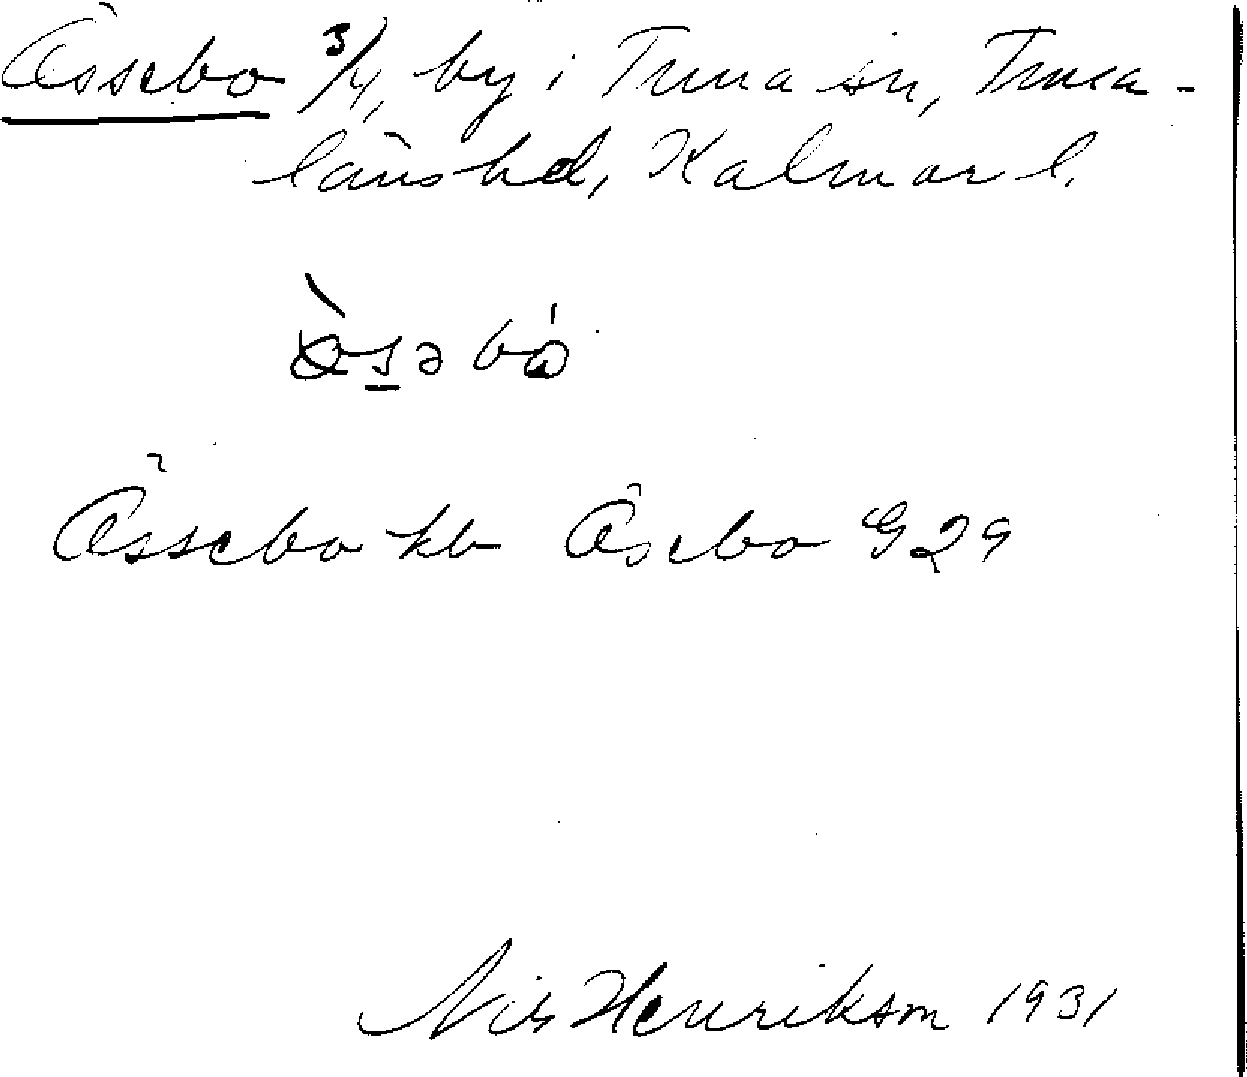 Åssebo 3/4, by i Tuna sn, Tuna-
läns hd, Kalmar l.
Åssebo kb Åsebo G 29
Nils Henrikson 1931